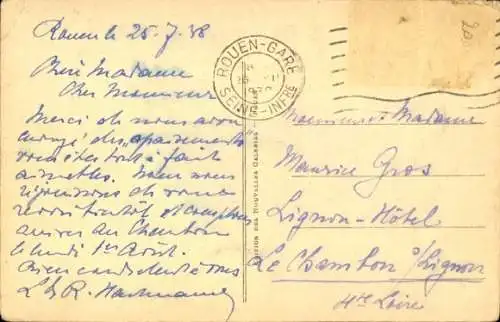 Rouen le 25-7-38
Chère Madame
Cher Monsieur
Merci de nous avoir
des apartements
vous êtes tout à fait
aimables. Nous nous
réjouissons de vous
revoir bientôt et comptons
arriver au Chambon
lundi 1er Août.
Bien cordialement à vous
L & R. Hartmann
ROUEN-GARE
SEINE-INFRE
ÉDITION DES NOUVELLES GALERIES
Monsieur & Madame
Maurice Gros
Lignon-Hôtel
Le Chambon s/Lignon
Hte Loire
20